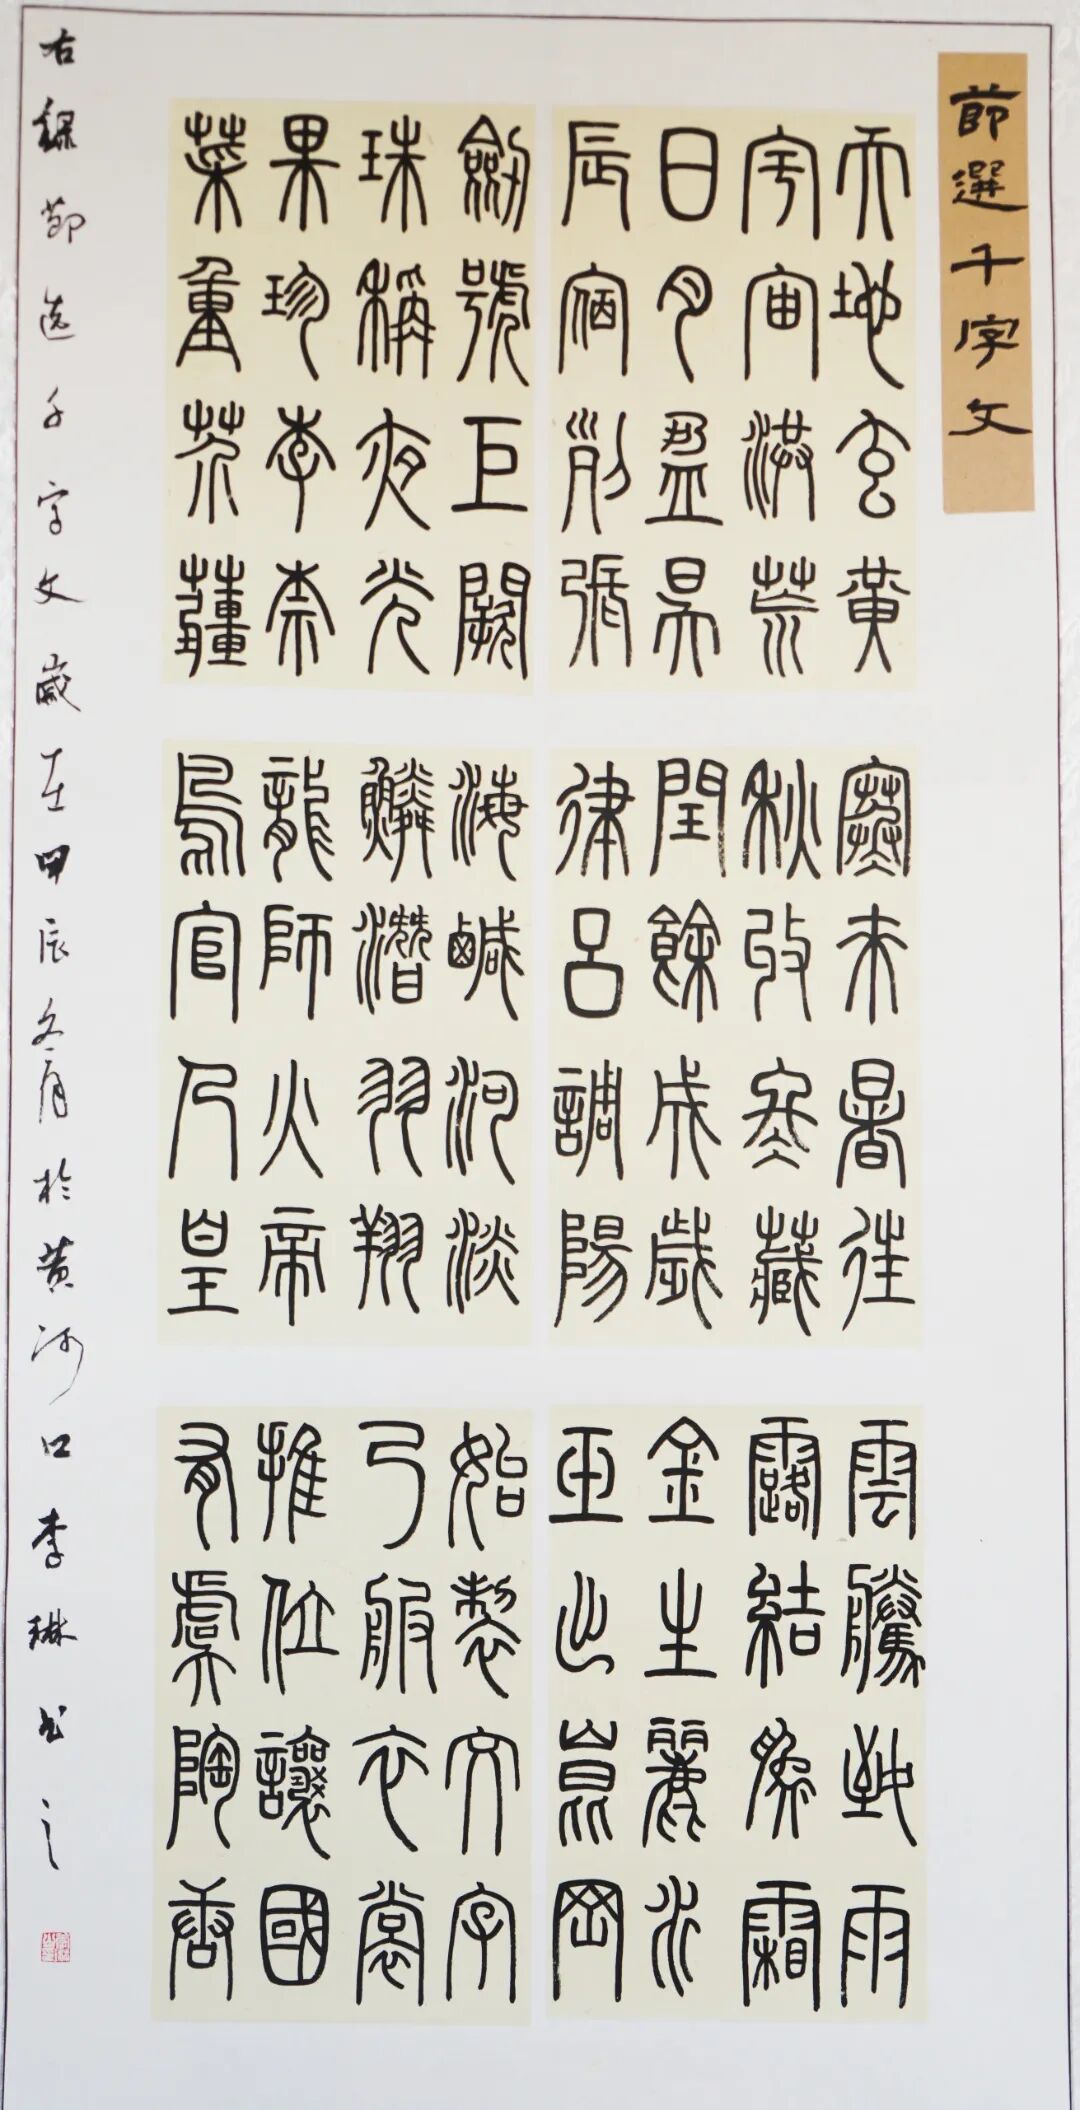 節選千字文
天地玄黃
宇宙洪荒
日月盈昃
辰宿列張
寒來暑往
秋收冬藏
閏餘成歲
律呂調陽
雲騰致雨
露結為霜
金生麗水
玉出崑岡
劍號巨闕
珠稱夜光
果珍李柰
菜重芥薑
海鹹河淡
鱗潛羽翔
龍師火帝
鳥官人皇
始製文字
乃服衣裳
推位讓國
有虞陶唐
右録節选千字文歲在甲辰冬月於黄河口李琳书之